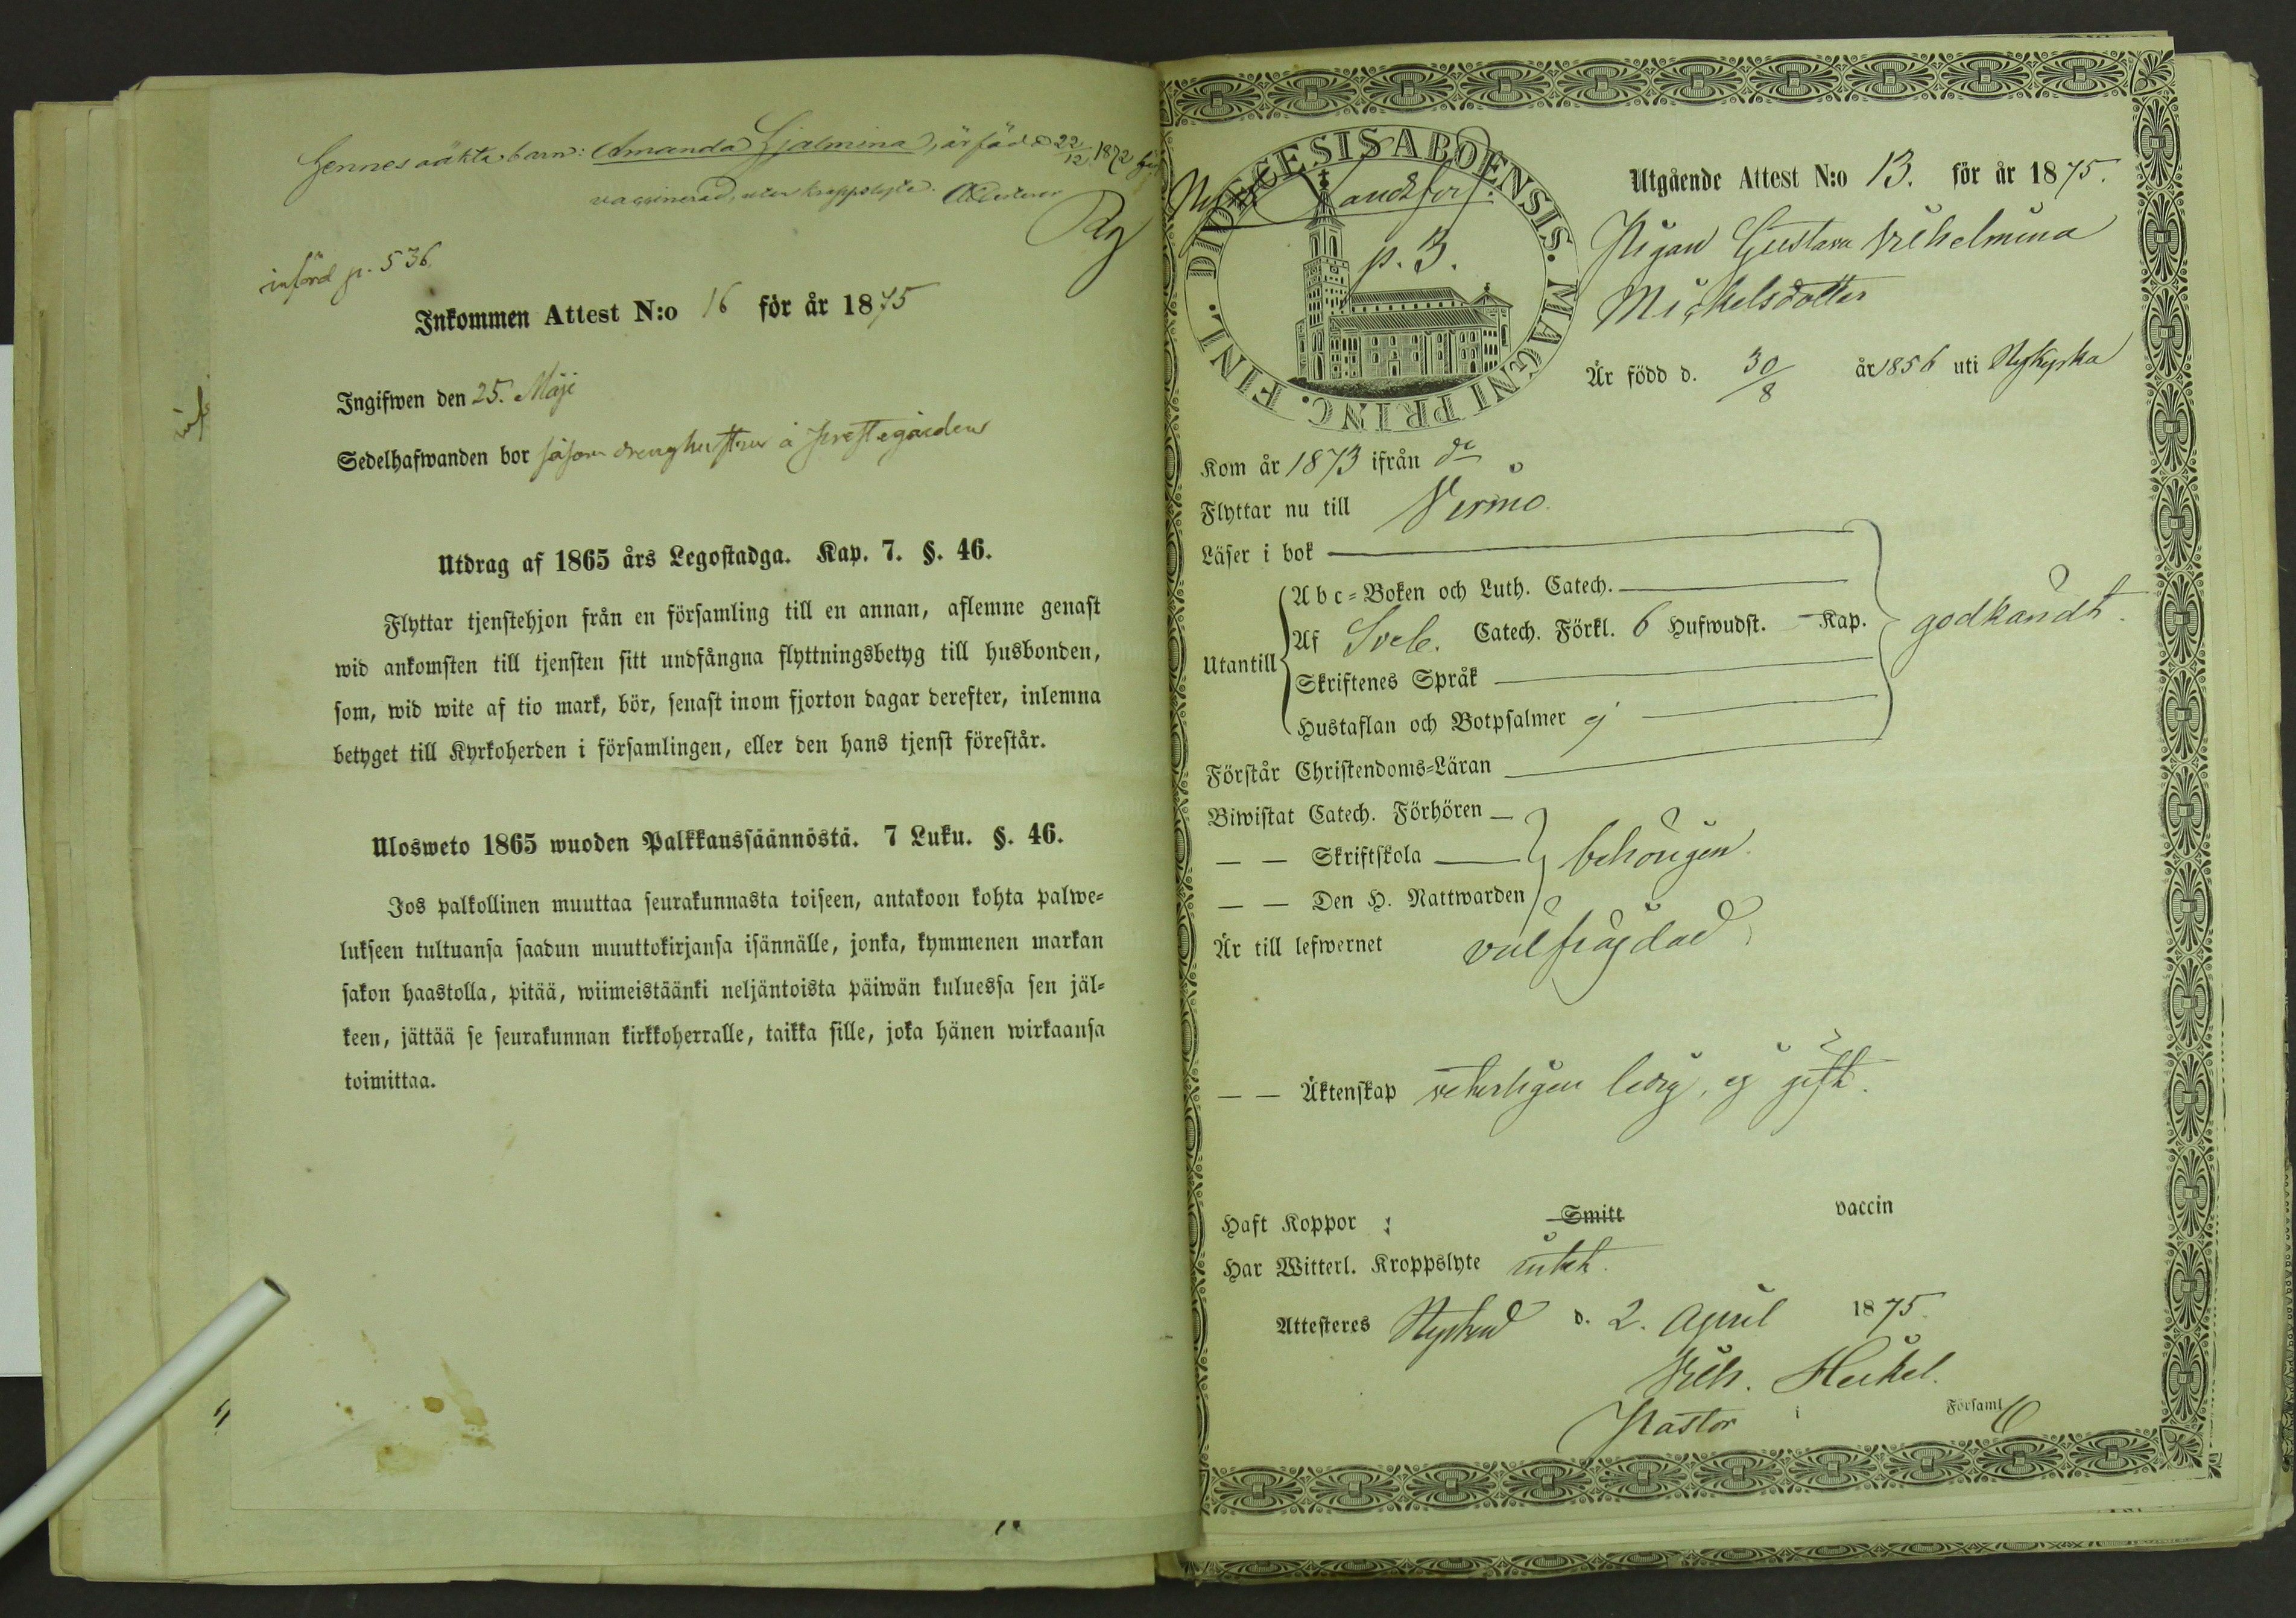 Hennes oäkta barn: Amanda Hjalmina, är född d 22/12 1872
vaccinerad, utan kroppslyte. Attesterar
införd p. 536.
Inkommen Attest N:o 16 för år 1875
Ingifwen den 25. Maji
Sedelhafwanden bor såsom drenghustru å Prestegården
Utdrag af 1865 års Legostadga. Kap. 7. §. 46.
Flyttar tjenstehjon från en församling till en annan, aflemne genast
wid ankomsten till tjensten sitt undfångna flyttningsbetyg till husbonden,
som, wid wite af tio mark, bör, senast inom fjorton dagar derefter, inlemna
betyget till Kyrkoherden i församlingen, eller den hans tjenst förestår.
Ulosweto 1865 wuoden Palkkaussäännöstä. 7 Luku. §. 46.
Jos palkollinen muuttaa seurakunnasta toiseen, antakoon kohta palwe=
lukseen tultuansa saadun muuttokirjansa isännälle, jonka, kymmenen markan
sakon haastolla, pitää, wiimeistäänki neljäntoista päiwän kuluessa sen jäl=
keen, jättää se seurakunnan kirkkoherralle, taikka sille, joka hänen wirkaansa
toimittaa.
DIOECESIS ABOENSIS. MAGNI PRINC. FINL.
p. 3.
Utgående Attest N:o 13. för år 1875.
Pigan Gustava Vilhelmina
Michelsdotter
Är född d. 30/8 år 1856 uti Nykyrka
Kom år 1873 ifrån do
Flyttar nu till Virmo.
Läser i bok
Utantill
Abc=Boken och Luth. Catech.
Af Sveb. Catech. Förkl. 6 Hufwudst. - Kap.
Skriftenes Språk
Hustaflan och Botpsalmer ej
godkändt.
Förstår Christendoms=Läran
Biwistat Catech. Förhören
— — Skriftskola
— — Den H. Nattwarden
behörigen.
Är till lefwernet välfrägdad
— — Äktenskap veterligen ledig, ej gift.
Haft Koppor : Smitt vaccin
Har Witterl. Kroppslyte intet.
Attesteres Nystad d. 2. April 1875.
Vilh. Heikel.
Pastor i Församl